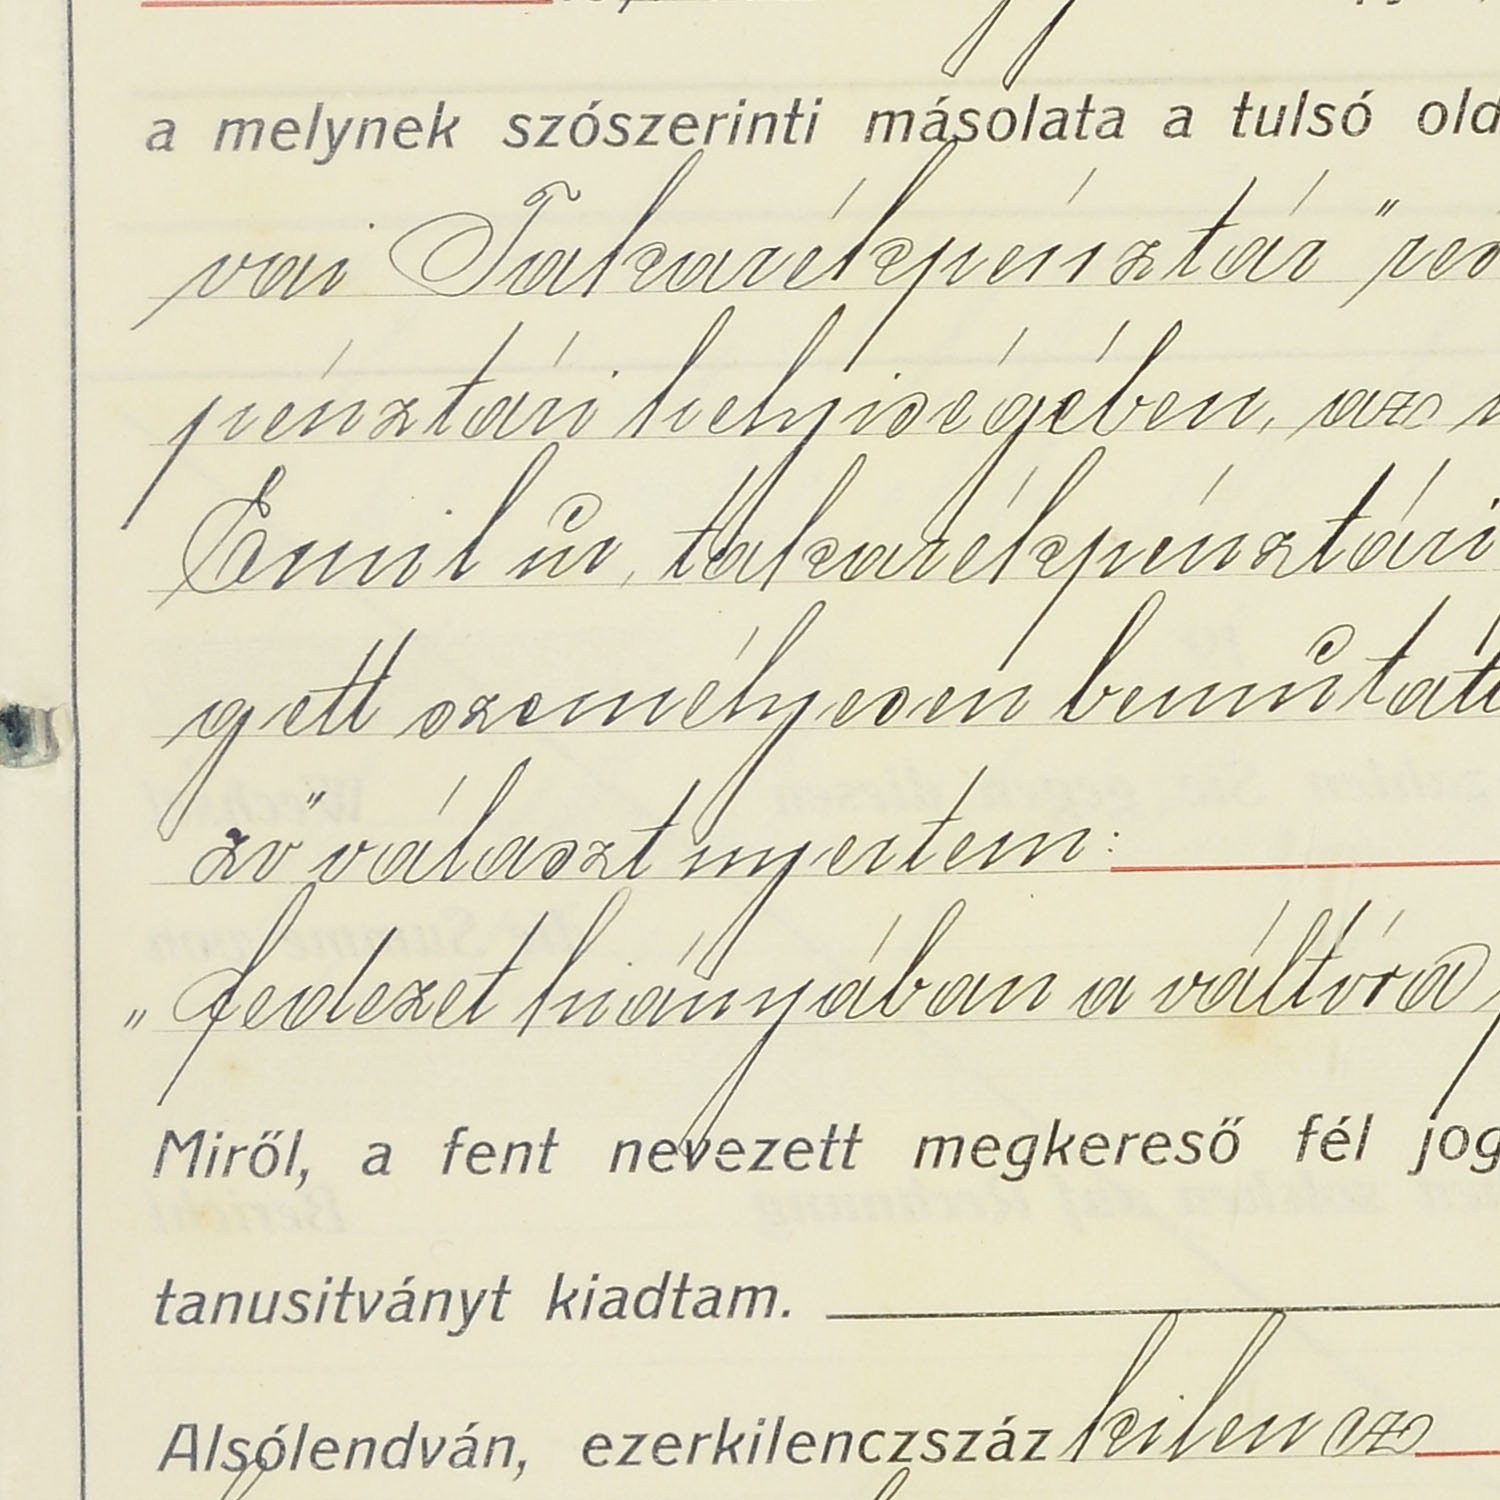 a melynek szószerinti másolata a tulsó old
vai Takarékpénztár" rés
pénztári helyiségében, az
Emil úr, takarékpénztári
gett személyesen bemutatt
ző" választ nyertem:
„fedezet hiányában a váltóra
Miről, a fent nevezett megkereső fél jog
tanusitványt kiadtam.
Alsólendván, ezerkilenczszáz kilencz